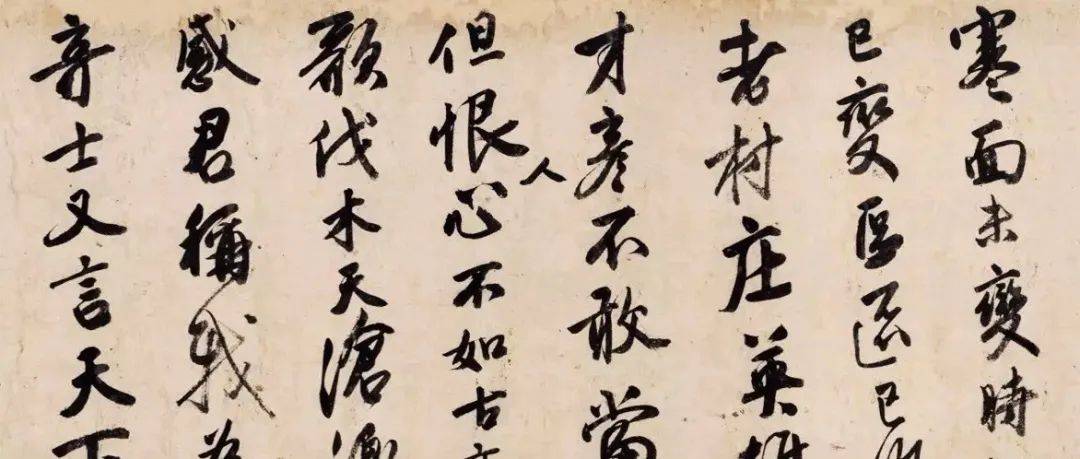 寒面未變時
已變區區已
老村庄英
才彥不敢當
但恨人心不如古
歌伐木天滄
感君稱我為
奇士又言天下